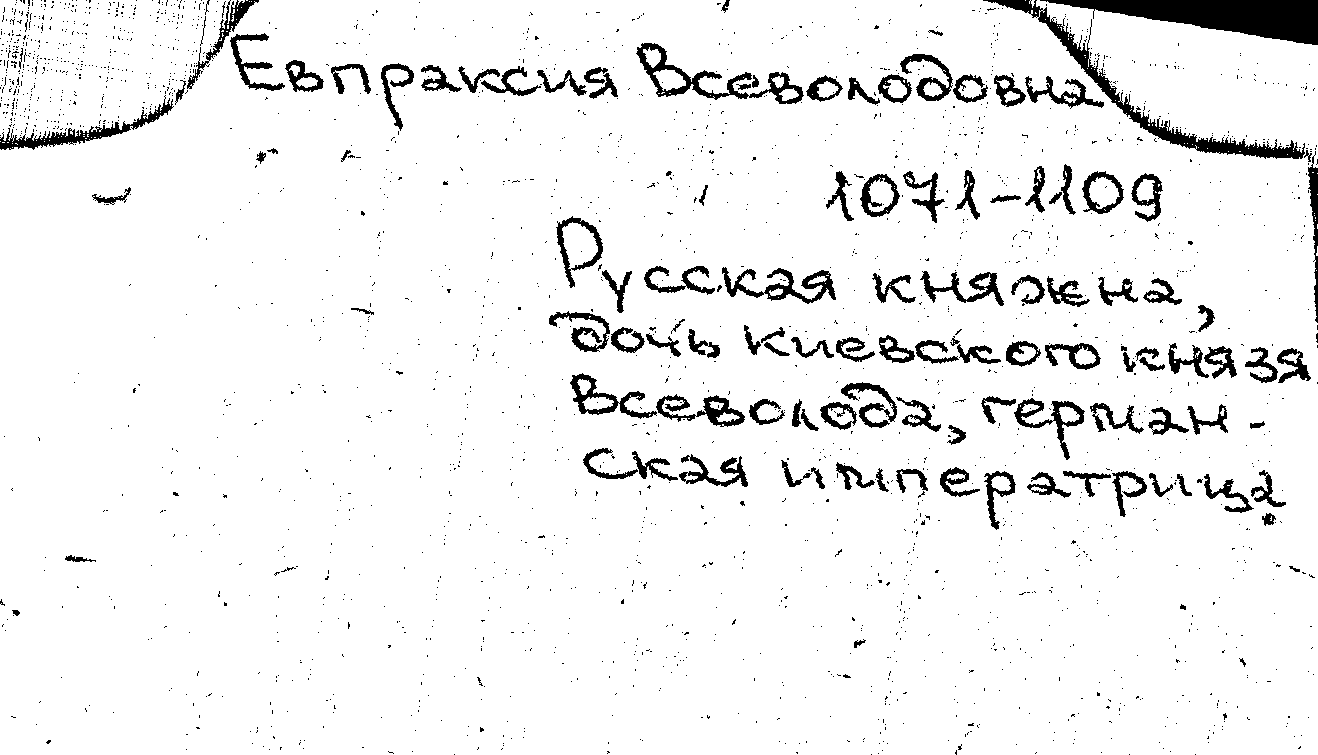 Евпраксия Всеволодовна
1071-1109
Русская княжна,
дочь киевского князя
Всеволода, герман-
ская императрица